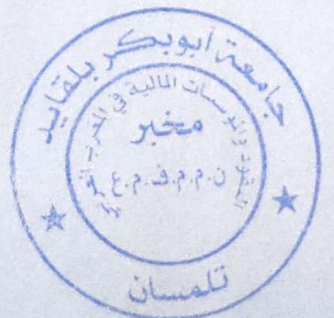 جامعة ابوبكر بلقايد
النقود والمؤسسات المالية في المغرب العربي
مخبر
ن.م.م.ف.م.ع
تلمسان